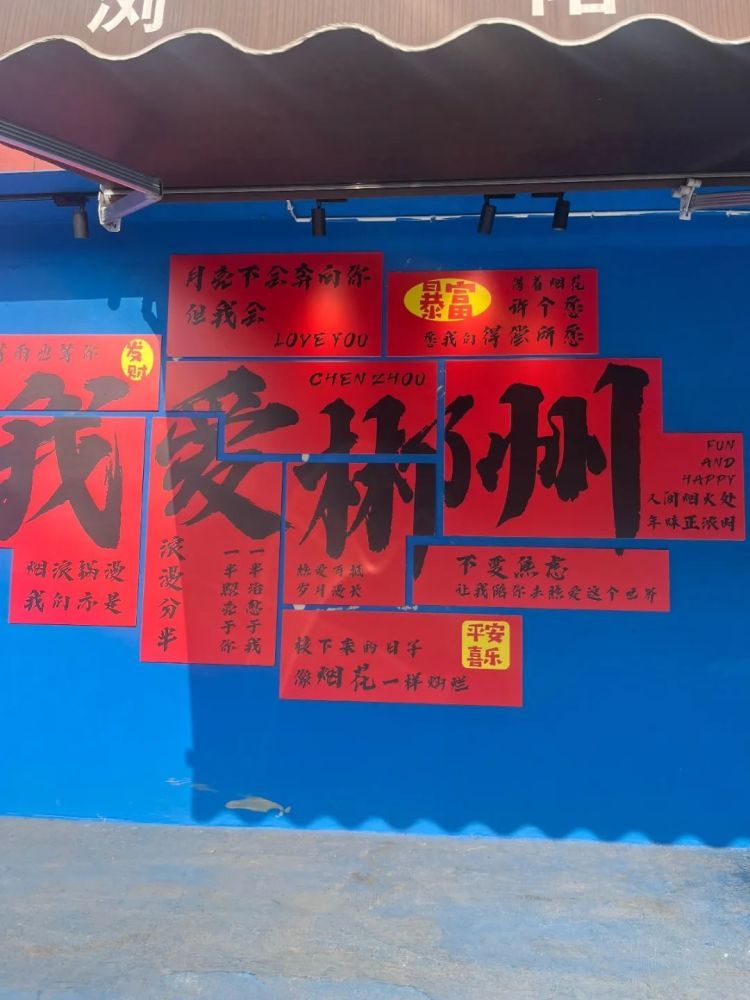 浏 阳
月亮不会奔向你
但我会
LOVE YOU
暴富
着烟花
许个愿
愿我们得偿所愿
雨也等你
发财
CHEN ZHOU
我爱郴州
FUN
AND
HAPPY
人间烟火处
年味正浓时
烟浪漫
我们亦是
浪漫分半
一半治愈于我
一半照亮于你
热爱可抵
岁月漫长
不要焦虑
让我陪你去热爱这个世界
接下来的日子
像烟花一样灿烂
平安
喜乐